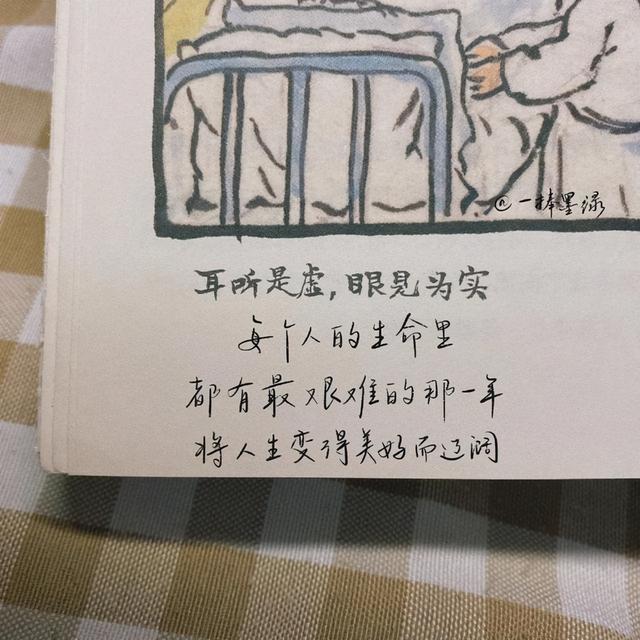 @一棒墨绿
耳听是虚,眼见为实
每个人的生命里
都有最艰难的那一年
将人生变得美好而辽阔